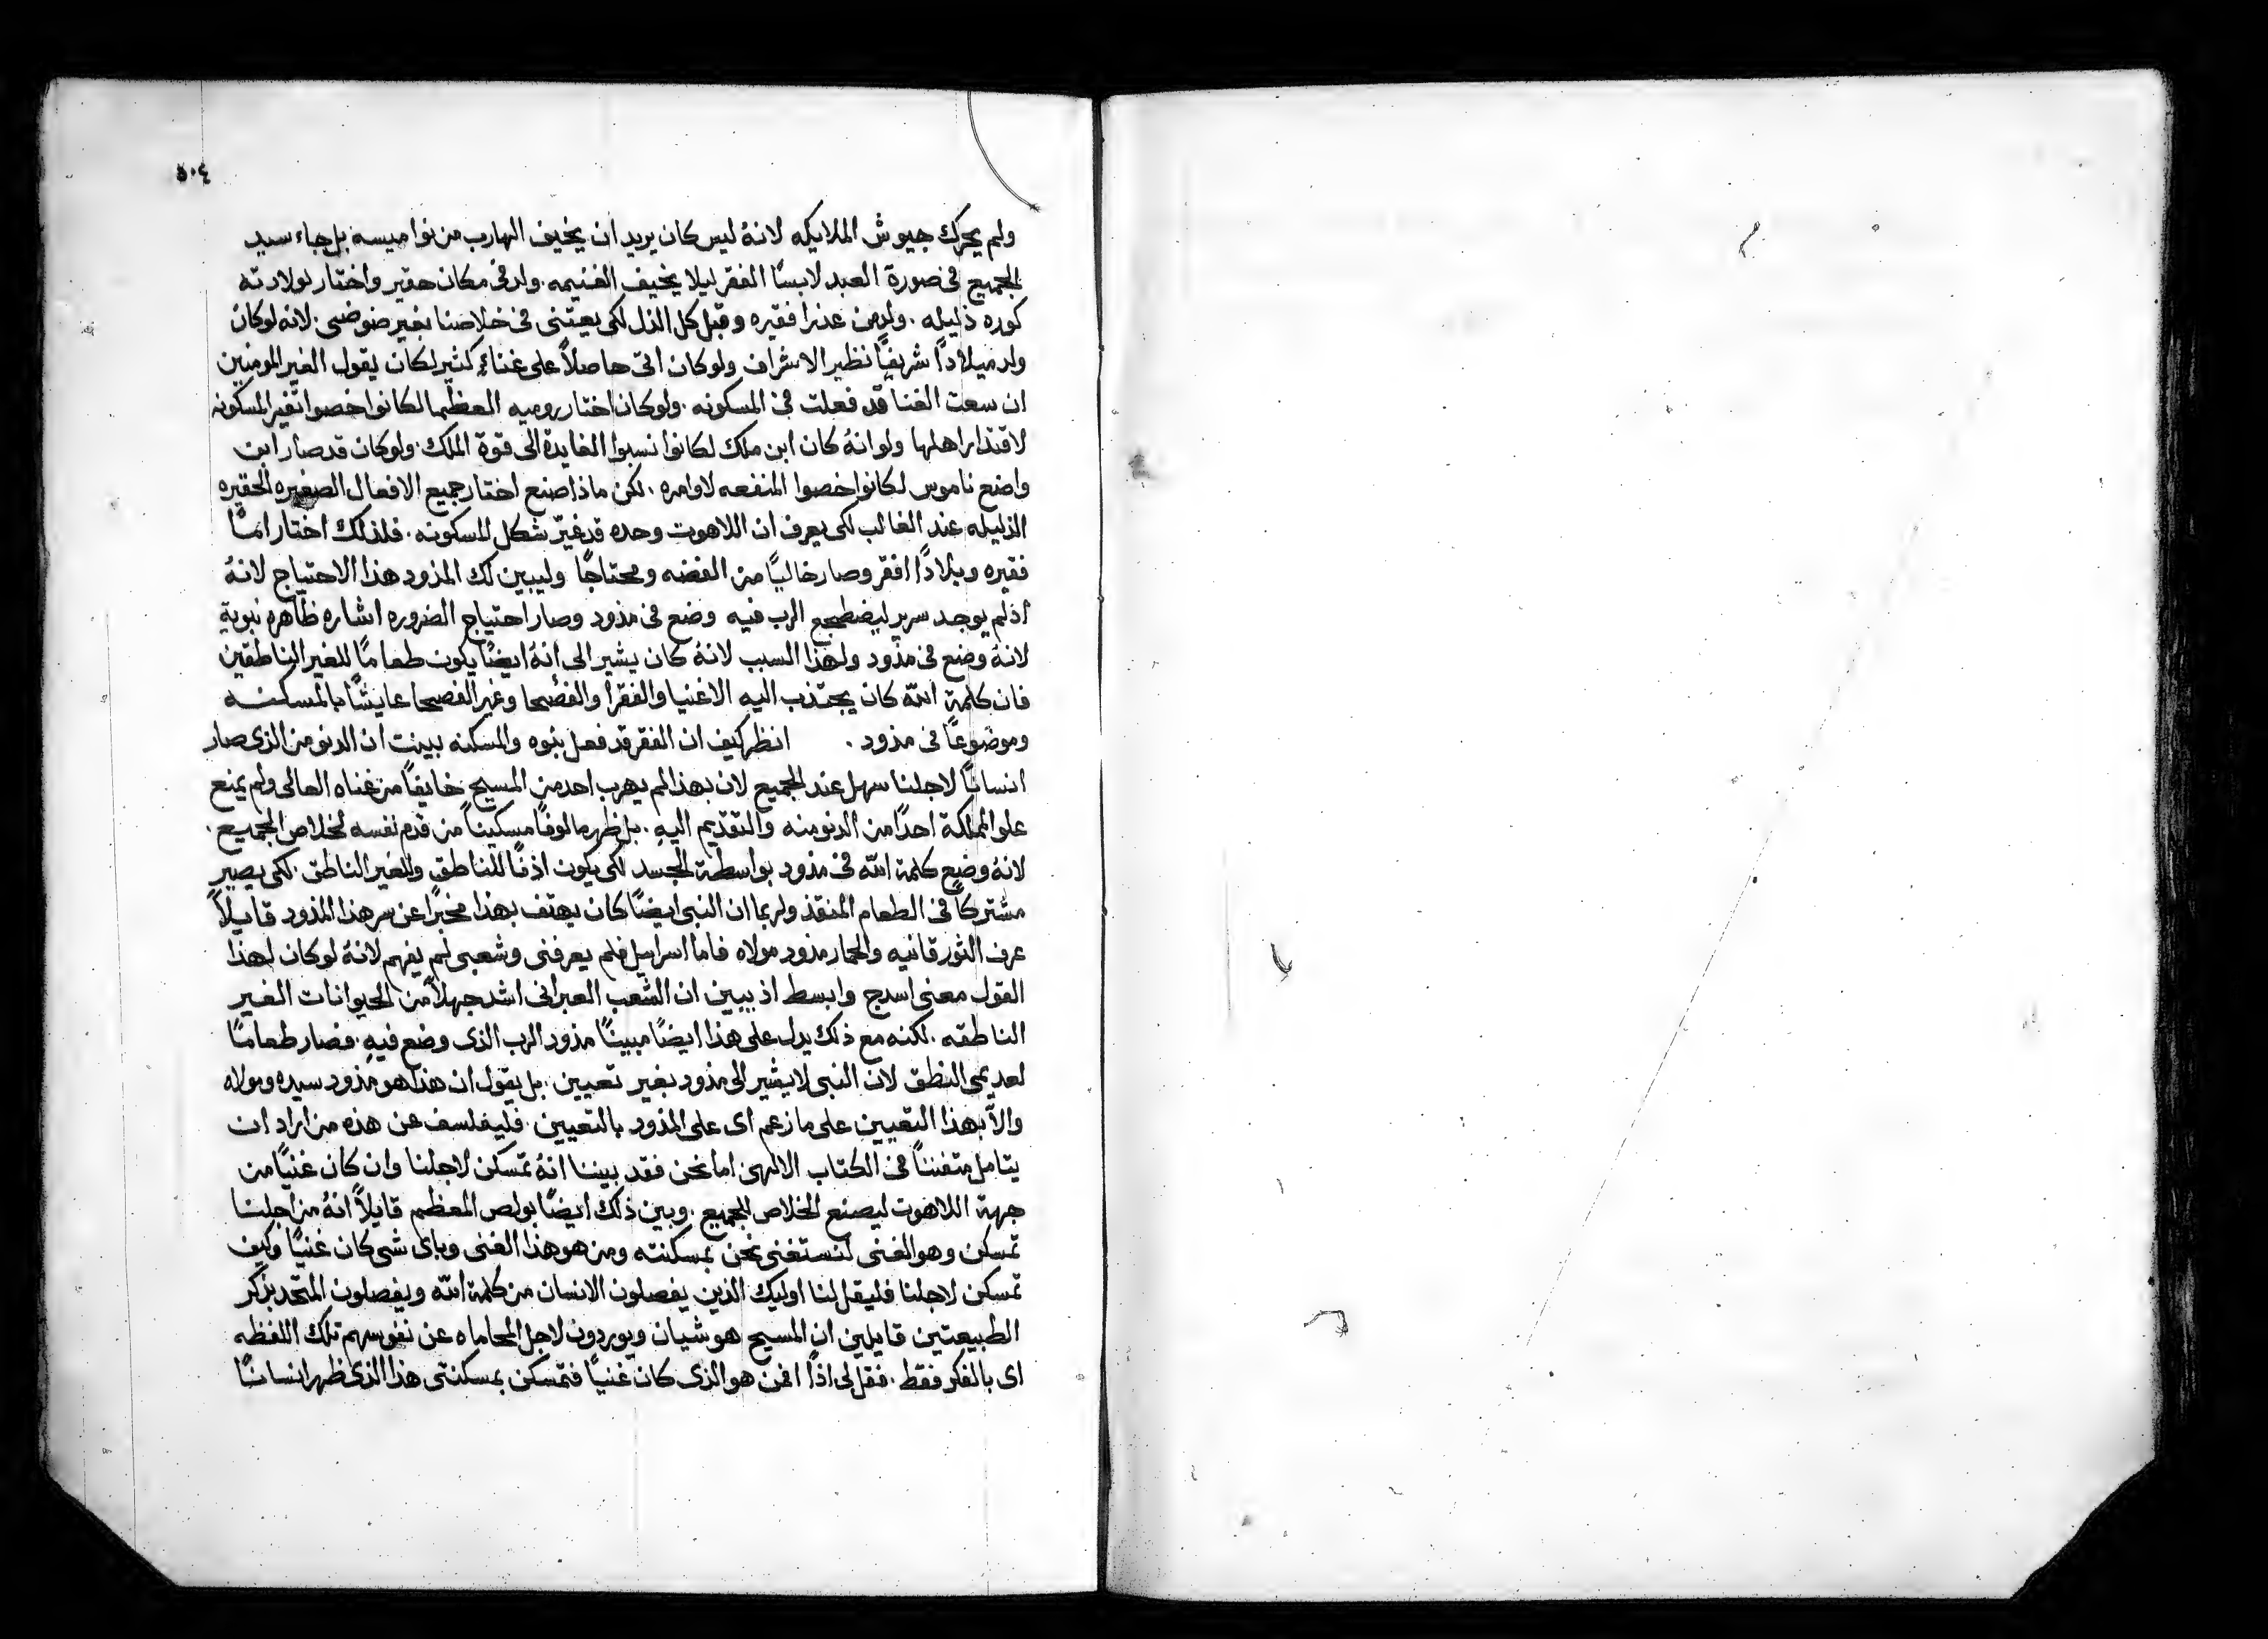 ٥٠٤
ولم يحرك جيوش الملايكه لانهُ ليس كان يريد ان يخيف الهارب من نواميسه بل جاء سيد
الجميع فى صورة العبد لابسًا الفقر ليلا يخيف الغنيمه. ولد فى مكان حقير واختار لولادته
كوره ذليله. ولد من عذرا فقيره وقبل كل الذل لكى يعتنى فى خلاصنا بغير ضوضى. لانه لوكان
ولد ميلادًا شريفًا نظير الاشراف ولوكان اتى حاصلاً على غناءٍ كثير لكان يقول الغير المومنين
ان سعت الغنا قد فعلت فى المسكونه. ولوكان اختار روميه العظما لكانوا خصوا تغير المسكونه
لاقتدار اهلها ولو انهُ كان ابن ملك لكانوا نسبوا الفايدة الى قوة الملك. ولوكان قد صار ابن
واضع ناموس لكانوا خصوا المنفعه لاوامره. لكن ماذا صنع اختار جميع الافعال الصغيره الحقيره
الذليله عند الغالب لكى يعرف ان اللاهوت وحده قد غيّر شكل المسكونه. فلذلك اختار امًا
فقيره وبلادًا افقر وصار خاليًا من الفضه ومحتاجًا وليبين لك المذود هذا الاحتياج لانهُ
اذ لم يوجد سرير ليضطجع الرب فيه وضع فى مذود وصار احتياج الضروره اشاره ظاهره نبوية
لانهُ وضع فى مذود ولهذا السبب لانهُ كان يشير الى انهُ ايضًا يكون طعامًا للغير الناطقين
فان كلمة الله كان يجتذب اليه الاغنيا والفقرا والفصحا وغير الفصحا عايشًا بالمسكنه
وموضوعًا فى مذود. انظر كيف ان الفقر قد فعل بنوه والمسكنه بينت ان الدنو من الذى صار
انسانًا لاجلنا سهل عند الجميع لان بهذا لم يهرب احد من المسيح خايفًا من غناه العالى ولم يمنع
علو المملكة احدًا من الدنو منه والتقديم اليهِ. بل ظهر مالوفًا مسكينًا من قدم نفسه لخلاص الجميع.
لانهُ وضع كلمة الله فى مذود بواسطة الجسد لكى يكون اذنًا للناطق وللغير الناطق. لكى يصير
مشتركًا فى الطعام المنقذ ولربما ان النبى ايضًا كان يهتف بهذا مخبرًا عن سر هذا المذود قايلاً
عرف الثور قانيه والحمار مذود مولاه فاما اسراييل فلم يعرفنى وشعبى لم يفهم لانهُ لوكان لهذا
القول معنى اسدج وابسط اذ يبين ان الشعب العبرانى اشد جهلاً من الحيوانات الغير
الناطقه. لكنه مع ذلك يدل على هذا ايضًا مبينًا مذود الرب الذى وضع فيهِ. فصار طعامًا
لعديمى النطق لان النبى لا يشير الى مذود بغير تعيين. بل يقول ان هذا هو مذود سيده ومولاه
والاّ بهذا التعيين على ما زعم اى على المذود بالتعيين. فليفلسف عن هذه من اراد ان
يتامل متفننًا فى الكتاب الالهى اما نحن فقد بينا انهُ تمسكن لاجلنا وان كان غنيًا من
جهة اللاهوت ليصنع الخلاص للجميع. وبين ذلك ايضًا بولص المعظم قايلاً انهُ من اجلنا
تمسكن وهو الغنى لنستغنى نحن بمسكنته ومن هو هذا الغنى وباى شى كان غنيًا وكيف
تمسكن لاجلنا فليقل لنا اوليك الذين يفصلون الانسان من كلمة الله ويفصلون المتحد بذكر
الطبيعتين قايلين ان المسيح هو شيان ويوردون لاجل المحاماه عن نفوسهم تلك اللفظه
اى بالفكر فقط. فقل لى اذًا افمن هو الذى كان غنيًا فتمسكن بمسكنتى هذا الذى ظهر انسانًا